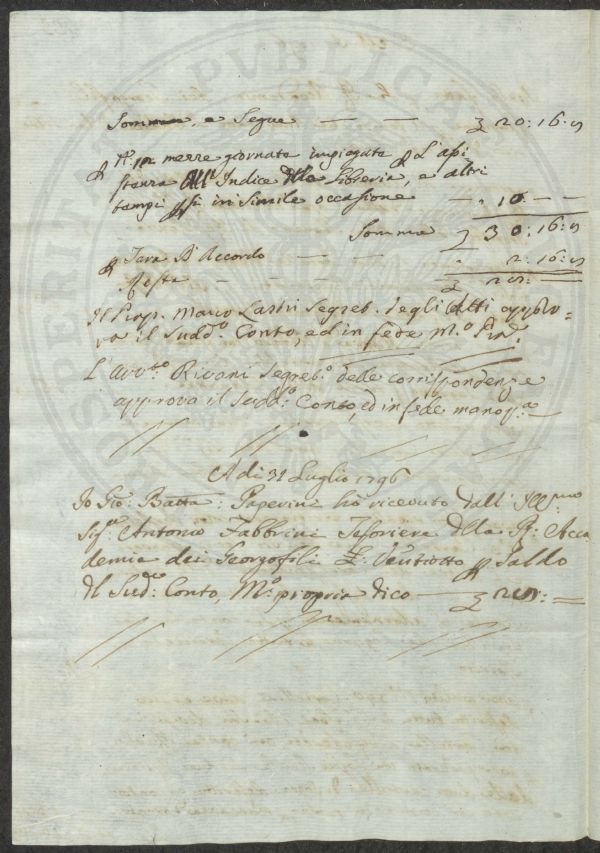 Somma, e Segue — — £ 20: 16: 8
P. n. 12 mezze giornate impiegate p. l'assi
stenza all'Indice della Libreria, e altri
tempi persi in simile occasione — " 10 — —
Somma £ 30: 16: 8
p. Tara d'Accordo — — " 2: 16: 8
Resta — — — £ 28: —
Il Prop. Marco Lastri Segret. degli Atti appro-
va il Sudd.o Conto, ed in fede M.o Pria.
L'Avv.to Rivani Segret.o delle corrispondenze
approva il Sudd.o Conto, ed in fede manop.a
A di 31 Luglio 1796
Io Gio: Batta: Paperini hò ricevuto dall' Ill.mo
Sig.re Antonio Fabbrini Tesoriere della R: Acca
demia dei Georgofili £. Ventotto p. Saldo
del Sud.o Conto, M.o propria dico — £ 28: —